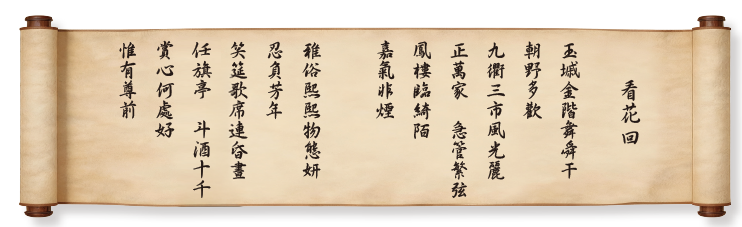 看花回
玉墄金階舞舜干
朝野多歡
九衢三市風光麗
正萬家 急管繁弦
鳳樓臨綺陌
嘉氣非煙
雅俗熙熙物態妍
忍負芳年
笑筵歌席連昏晝
任旗亭 斗酒十千
賞心何處好
惟有尊前